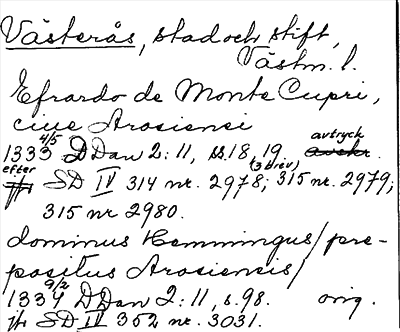 Västerås, stad och stift,
Västm. l.
Efrardo de Monte Cupri,
ciue Arosiensi
1333 4/5 DDan 2:11, ss. 18, 19. avtryck
efter SD IV 314 nr. 2978; (3 brev) 315 nr. 2979;
315 nr 2980.
dominus Hemmingus/pre-
positus Arosiensis/
1334 9/2 DDan 2:11, s. 98. orig.
jfr SD IV 352 nr. 3031.